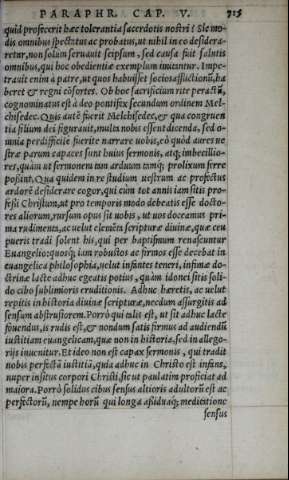 PARAPHR. CAP. V. 715
quid profecerit hæc tolerantia sacerdotis nostri? Sic mo-
dis omnibus spectatus ac probatus, ut nihil in eo desidera-
retur, non solum servavit seipsum, sed causa fuit salutis
omnibus, qui hoc obedientiæ exemplum imitantur. Impe-
travit enim à patre, ut quos habuisset socios afflictionū, ha
beret & regni cōsortes. Ob hoc sacrificium rite peractū,
cognominatus est à deo pontifex secundum ordinem Mel-
chisedec. Quis autē fuerit Melchisedec, & qua congruen
tia filium dei figuravit, multa nobis essent dicenda, sed o-
mnia perdifficile fuerit narrare vobis, eò quòd aures ve
stræ parum capaces sunt huius sermonis, atq; imbecillio-
res, quàm ut sermonem tam arduum tamq; prolixum ferre
possint. Qua quidem in re studium vestrum ac profectus
ardorē desiderare cogor, qui cùm tot annis iam sitis pro-
fessi Christum, ut pro temporis modo debeatis esse docto-
res aliorum, rursum opus sit vobis, ut vos doceamus pri-
ma rudimenta, ac velut elementa scripturæ divinæ, quæ ceu
pueris tradi solent his, qui per baptismum renascuntur
Evangelio: quosq; iam robustos ac firmos esse decebat in
evangelica philosophia, velut infantes teneri, infimæ do-
ctrinæ lacte adhuc egeatis potius, quàm idonei sitis soli-
do cibo sublimioris eruditionis. Adhuc hæretis, ac velut
reptitis in historia divinæ scripturæ, necdum assurgitis ad
sensum abstrusiorem. Porrò qui talis est, ut sit adhuc lacte
fovendus, is rudis est, & nondum satis firmus ad audiendū
iustitiam evangelicam, quæ non in historia, sed in allego-
rijs invenitur. Et ideo non est capax sermonis, qui tradit
nobis perfectā iustitiā, quia adhuc in Christo est infans,
nuper insitus corpori Christi, sic ut paulatim proficiat ad
maiora. Porrò solidus cibus sensus altioris adultorū est ac
perfectorū, nempe horū qui longa assiduaq; meditatione
sensus